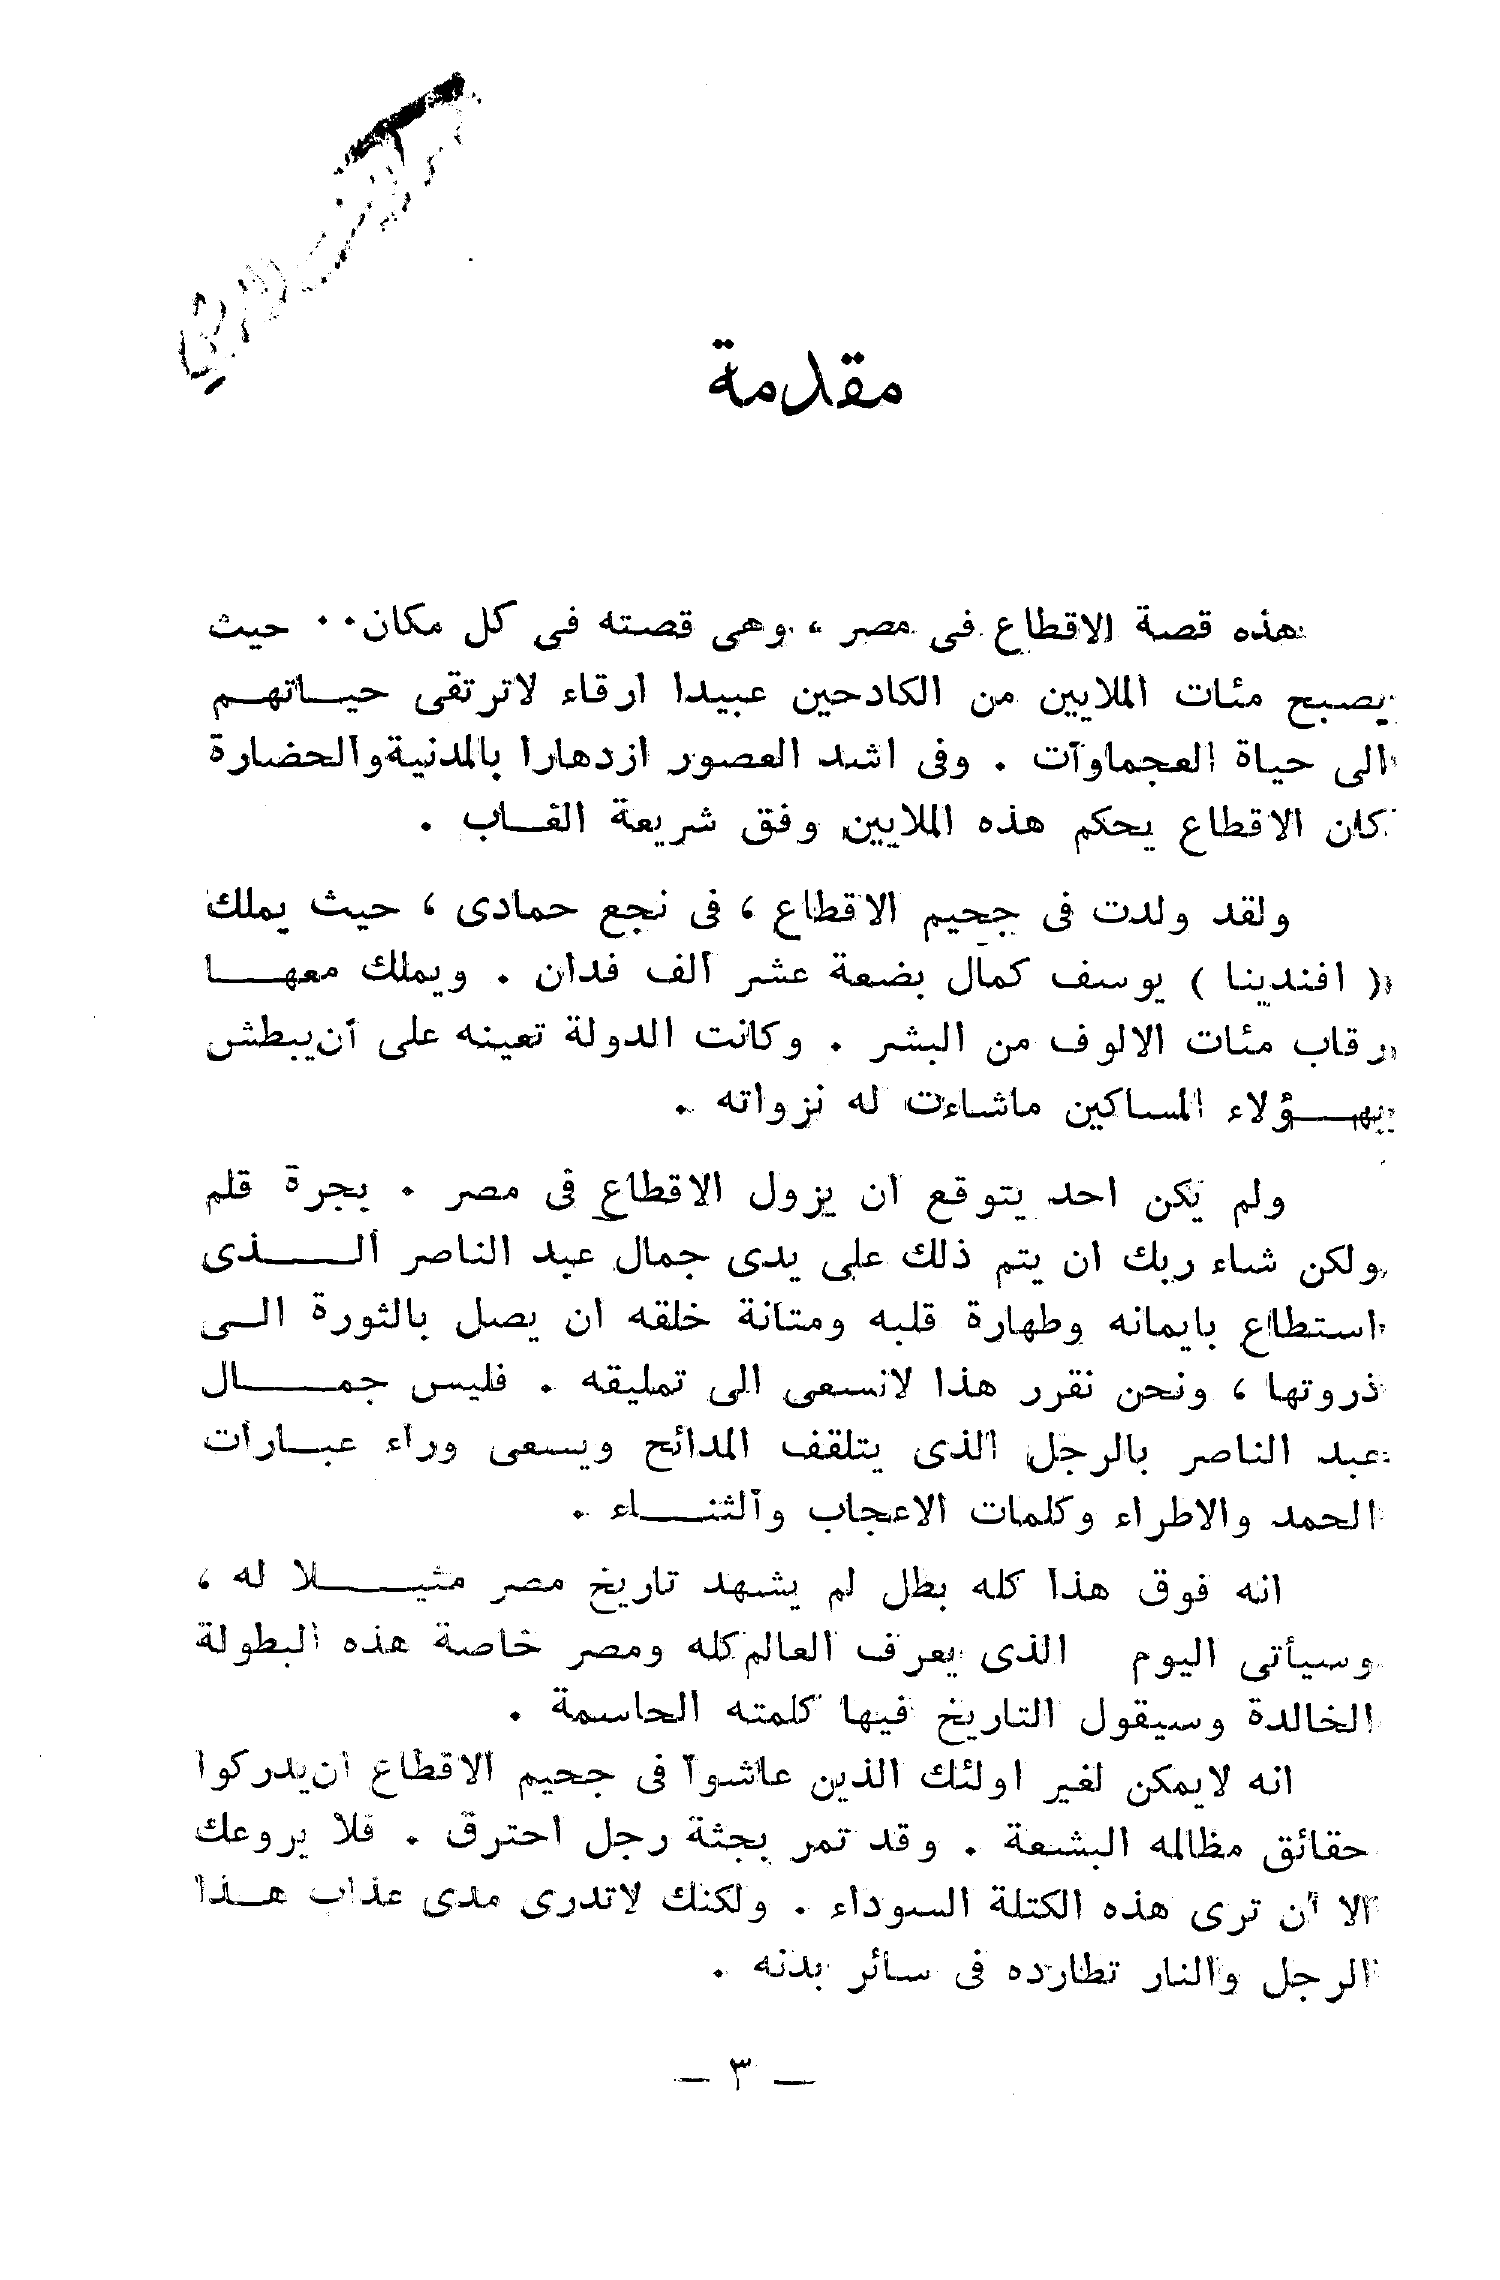 مقدمة
هذه قصة الاقطاع فى مصر ، وهى قصته فى كل مكان ٠٠ حيث
يصبح مئات الملايين من الكادحين عبيدا ارقاء لاترتقى حياتهم
الى حياة العجماوات . وفى اشد العصور ازدهارا بالمدنية والحضارة
كان الاقطاع يحكم هذه الملايين وفق شريعة الغاب .
ولقد ولدت فى جحيم الاقطاع ، فى نجع حمادى ، حيث يملك
( افندينا ) يوسف كمال بضعة عشر ألف فدان . ويملك معها
رقاب مئات الالوف من البشر . وكانت الدولة تعينه على أن يبطش
بهؤلاء المساكين ماشاءت له نزواته .
ولم يكن احد يتوقع ان يزول الاقطاع فى مصر . بجرة قلم
ولكن شاء ربك ان يتم ذلك على يدى جمال عبد الناصر الذى
استطاع بايمانه وطهارة قلبه ومتانة خلقه ان يصل بالثورة الى
ذروتها ، ونحن نقرر هذا لانسعى الى تمليقه . فليس جمال
عبد الناصر بالرجل الذى يتلقف المدائح ويسعى وراء عبارات
الحمد والاطراء وكلمات الاعجاب والثناء .
انه فوق هذا كله بطل لم يشهد تاريخ مصر مثيلا له ،
وسيأتى اليوم الذى يعرف العالم كله ومصر خاصة هذه البطولة
الخالدة وسيقول التاريخ فيها كلمته الحاسمة .
انه لايمكن لغير اولئك الذين عاشوا فى جحيم الاقطاع ان يدركوا
حقائق مظالمه البشعة . وقد تمر بجثة رجل احترق . فلا يروعك
الا أن ترى هذه الكتلة السوداء . ولكنك لاتدرى مدى عذاب هذا
الرجل والنار تطارده فى سائر بدنه .
— ٣ —